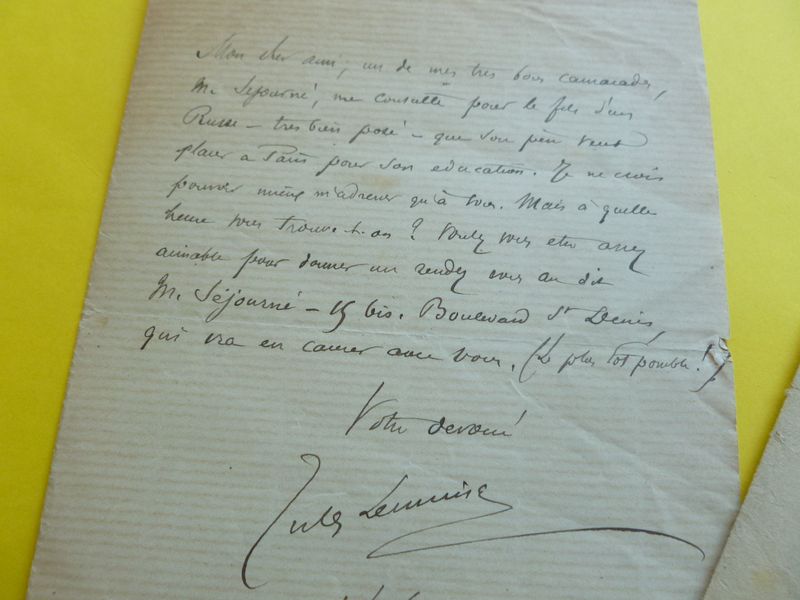 Mon cher ami, un de mes très bons camarades,
M. Séjourné, me consulte pour le fils d'un
Russe – très bien posé – que son père veut
placer à Paris pour son éducation. Je ne crois
pouvoir mieux m'adresser qu'à vous. Mais à quelle
heure vous trouve-t-on ? Voulez vous etre assez
aimable pour donner un rendez vous au dit
M. Séjourné – 15 bis. Boulevard St Denis,
qui ira en causer avec vous. (Le plus tôt possible !)
Votre dévoué
Jules